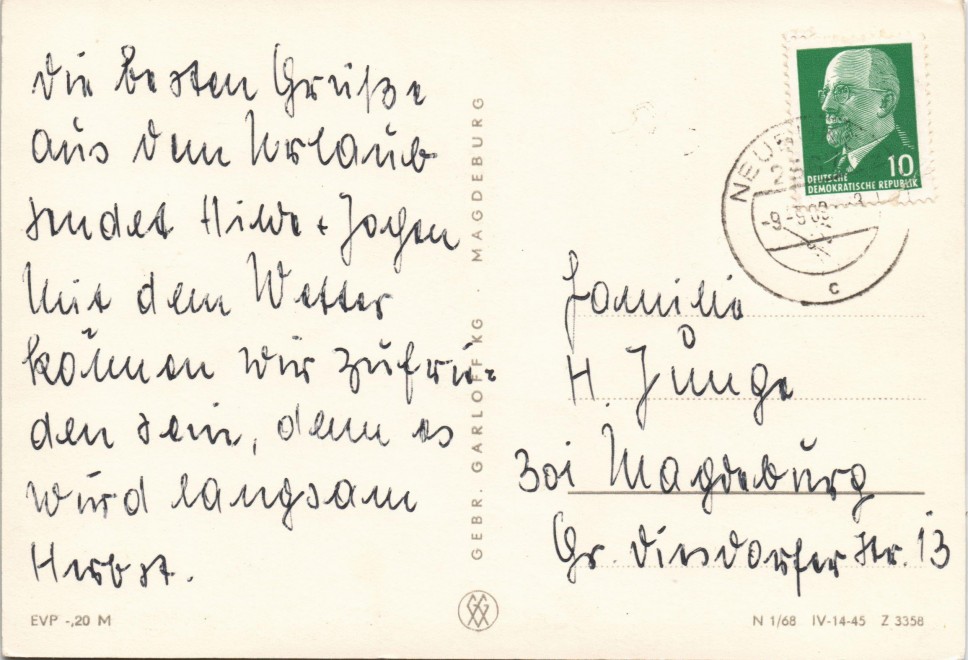 Die besten Grüße
aus dem Urlaub
sendet Hilde + Jochen
Mit dem Wetter
können wir zufrie-
den sein, denn es
wird langsam
Herbst.
GEBR. GARLOFF KG · MAGDEBURG
10
DEUTSCHE
DEMOKRATISCHE REPUBLIK
c
Familie
H. Junge
301 Magdeburg
Gr. Diesdorfer Str. 13
EVP -,20 M
N 1/68 IV-14-45 Z 3358